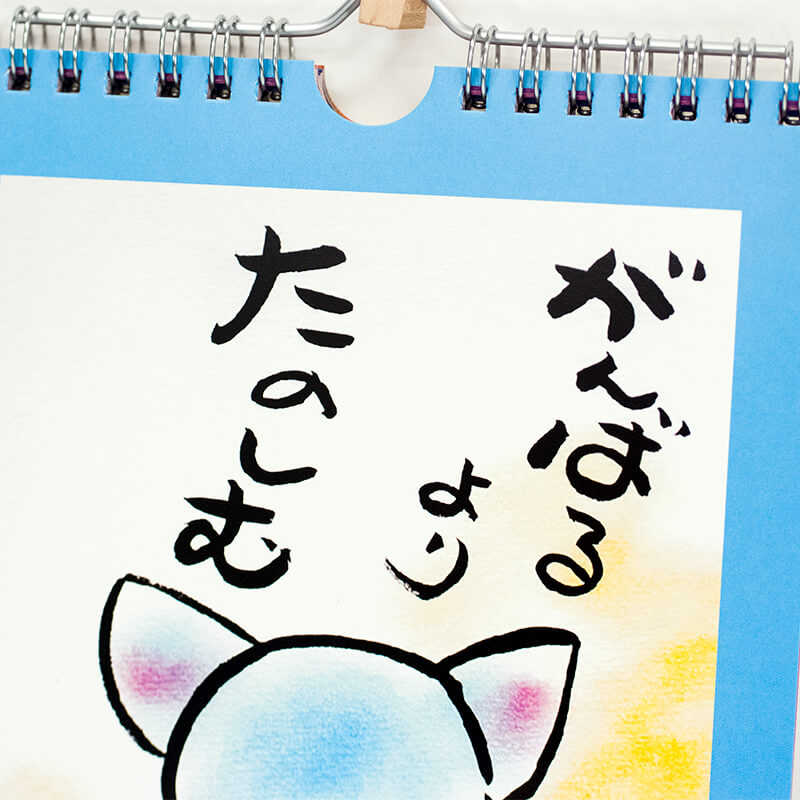 がんばる
より
たのしむ